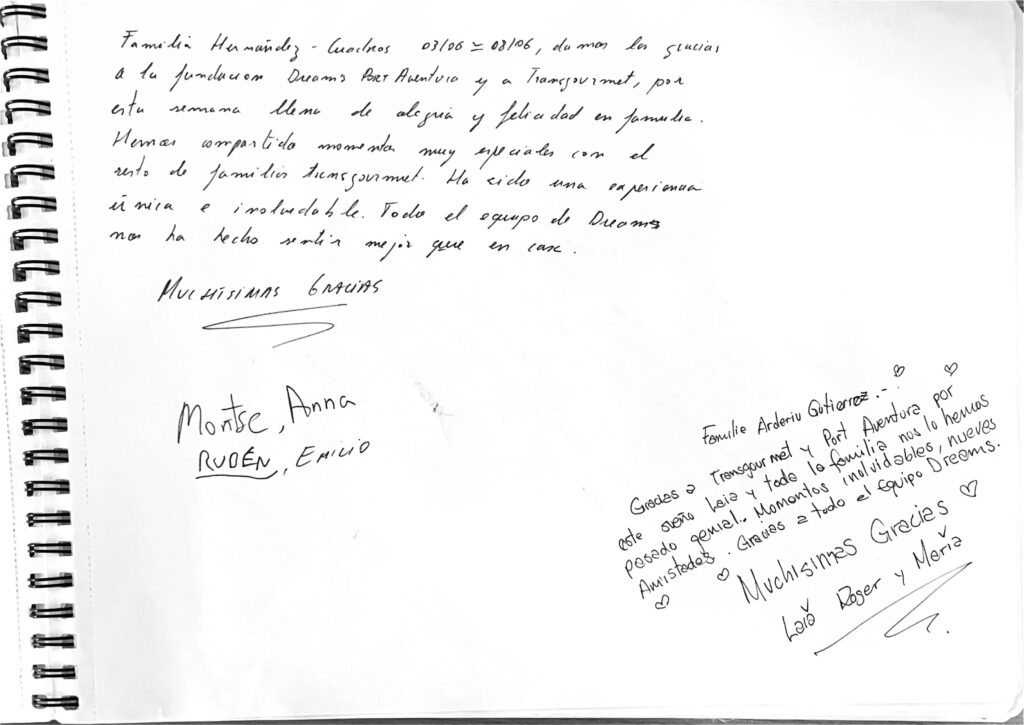 Familia Hernández - Cuadros 03/06 ≃ 08/06, damos las gracias
a la fundacion Dreams PortAventura y a Transgourmet, por
esta semana llena de alegria y felicidad en familia.
Hemos compartido momentos muy especiales con el
resto de familias transgourmet. Ha sido una experiencia
única e inolvidable. Todo el equipo de Dreams
nos ha hecho sentir mejor que en casa.
MUCHÍSIMAS GRACIAS
Montse, Anna
RUBÉN, EMILIO
Familia Arderiu Gutierrez.-
Gracias a Transgourmet y Port Aventura por
este sueño Laia y toda la familia nos lo hemos
pasado genial. Momentos inolvidables, nuevas
Amistades. Gracias a todo el equipo Dreams.
Muchisimas Gracias
Laia Roger y Maria